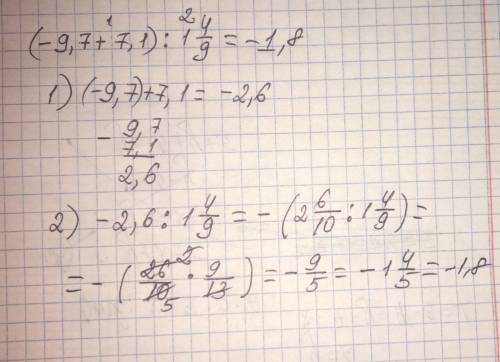 1 2
(-9,7+7,1) : 1 4/9 = -1,8
1) (-9,7)+7,1 = -2,6
- 9,7
7,1
2,6
2) -2,6 : 1 4/9 = -(2 6/10 : 1 4/9) =
= -(26/10 · 9/13) = -9/5 = -1 4/5 = -1,8
2
5